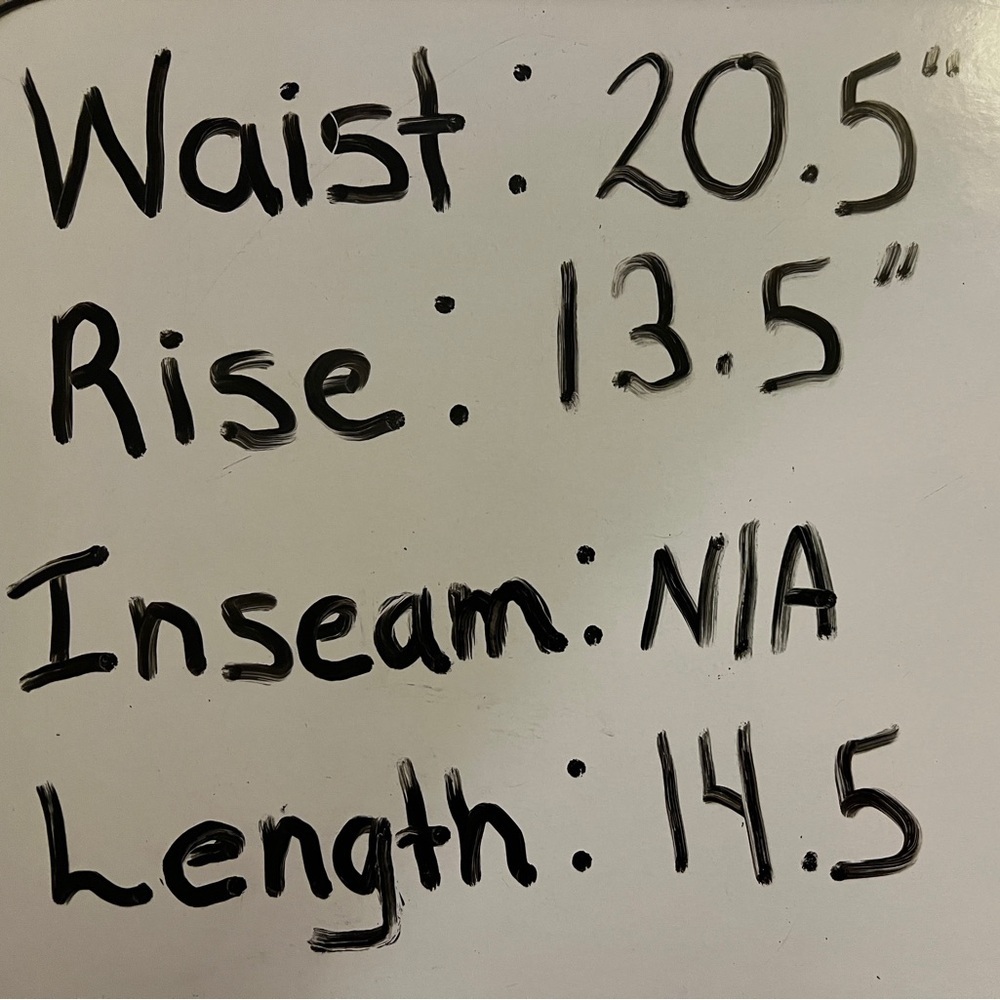 Waist: 20.5"
Rise: 13.5"
Inseam: N/A
Length: 14.5